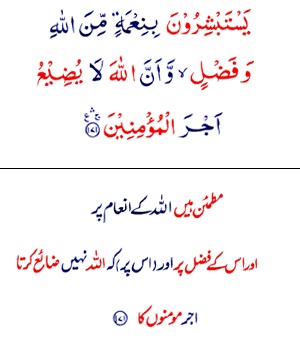 يَسۡتَبۡشِرُوۡنَ بِنِعۡمَةٍ مِّنَ اللّٰهِ
وَ فَضۡلٍ ۙ وَّ اَنَّ اللّٰهَ لَا يُضِيۡعُ
اَجۡرَ الۡمُؤۡمِنِيۡنَ ﴿۱۷۱﴾
مطمئن ہیں اللہ کے انعام پر
اور اس کے فضل پر اور (اس پر) کہ اللہ نہیں ضائع کرتا
اجر مومنوں کا ﴿۱۷۱﴾